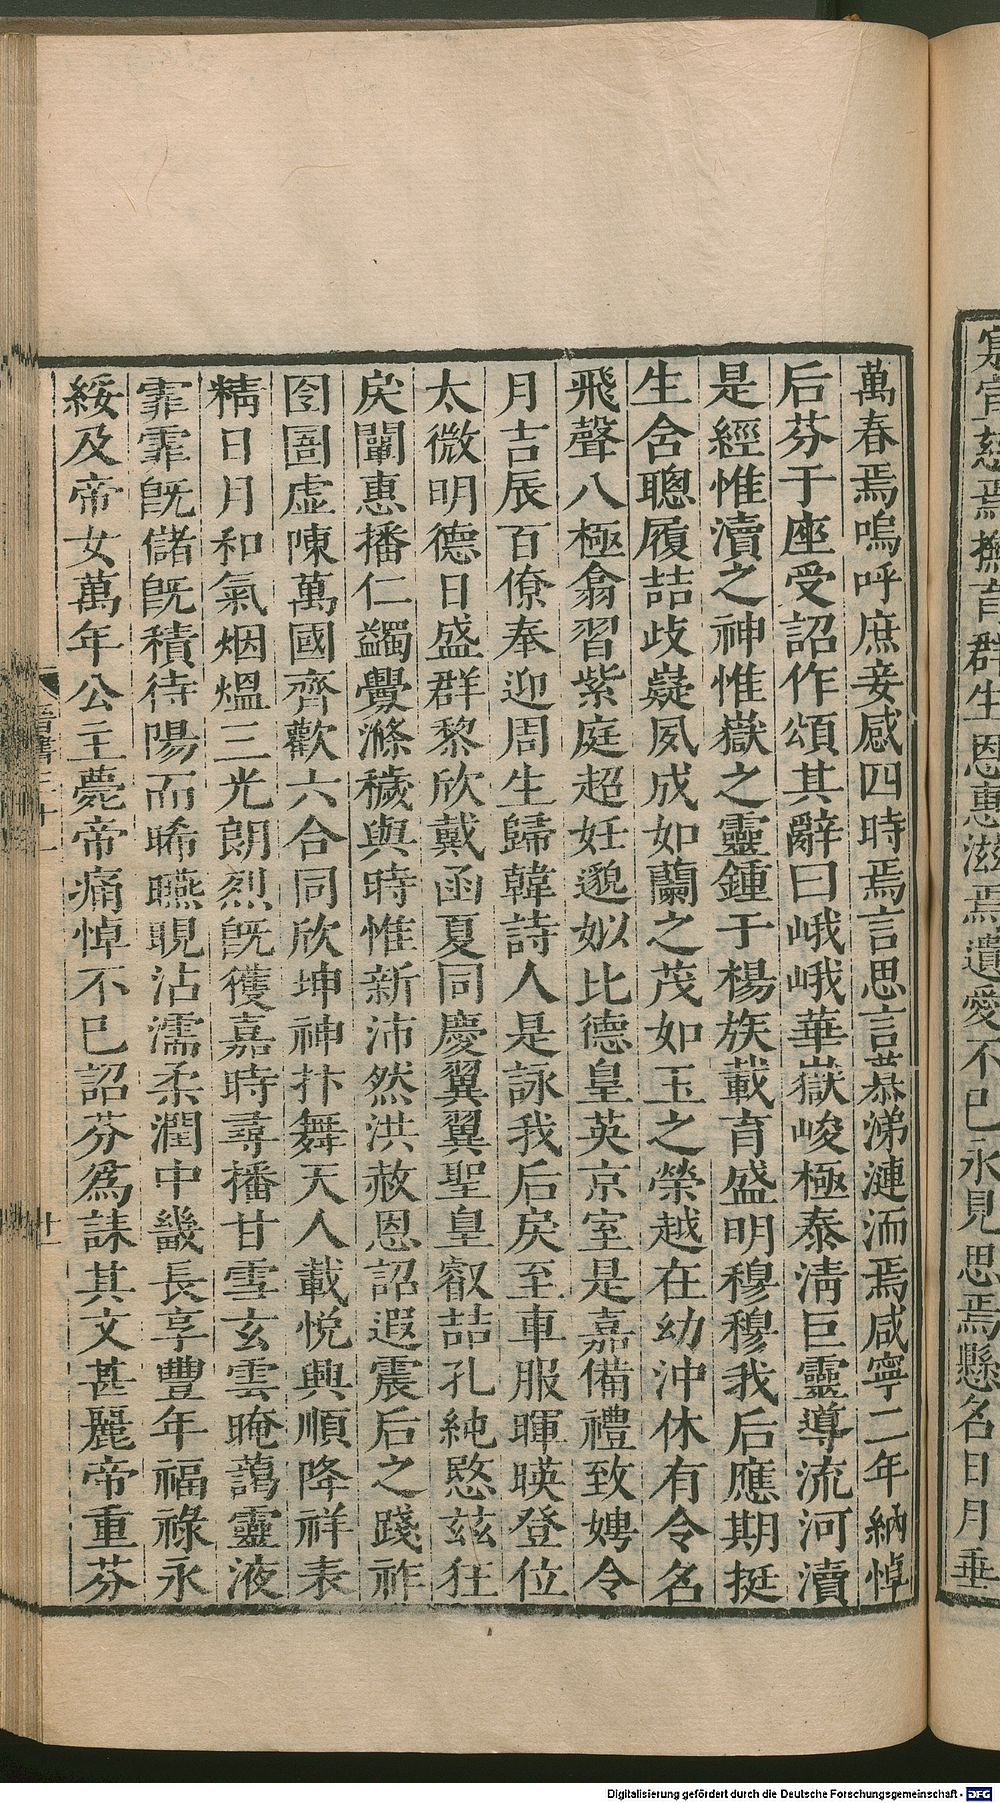 寡宵慈焉撫育群生恩惠滋焉遺愛不已永見思焉懸名日月垂
萬春焉嗚呼庶妾感四時焉言思言慕涕漣洏焉咸寧二年納悼
后芬于座受詔作頌其辭曰峨峨華嶽峻極泰清巨靈導流河瀆
是經惟瀆之神惟嶽之靈鍾于楊族載育盛明穆穆我后應期挺
生含聰履喆歧嶷夙成如蘭之茂如玉之榮越在幼沖休有令名
飛聲八極翕習紫庭超妊邈姒比德皇英京室是嘉備禮致娉令
月吉辰百僚奉迎周生歸韓詩人是詠我后戾至車服暉暎登位
太微明德日盛群黎欣戴函夏同慶翼翼聖皇叡喆孔純愍茲狂
戾闡惠播仁蠲釁滌穢與時惟新沛然洪赦恩詔遐震后之踐祚
囹圄虛陳萬國齊歡六合同欣坤神抃舞天人載悅興順降祥表
精日月和氣烟熅三光朗烈旣獲嘉時尋播甘雪玄雲晻藹靈液
霏霏旣儲旣積待陽而晞𣊬睍沾濡柔潤中畿長享豐年福祿永
綏及帝女萬年公主薨帝痛悼不已詔芬爲誄其文甚麗帝重芬
晉書三十一
廿一
Digitalisierung gefördert durch die Deutsche Forschungsgemeinschaft - DFG